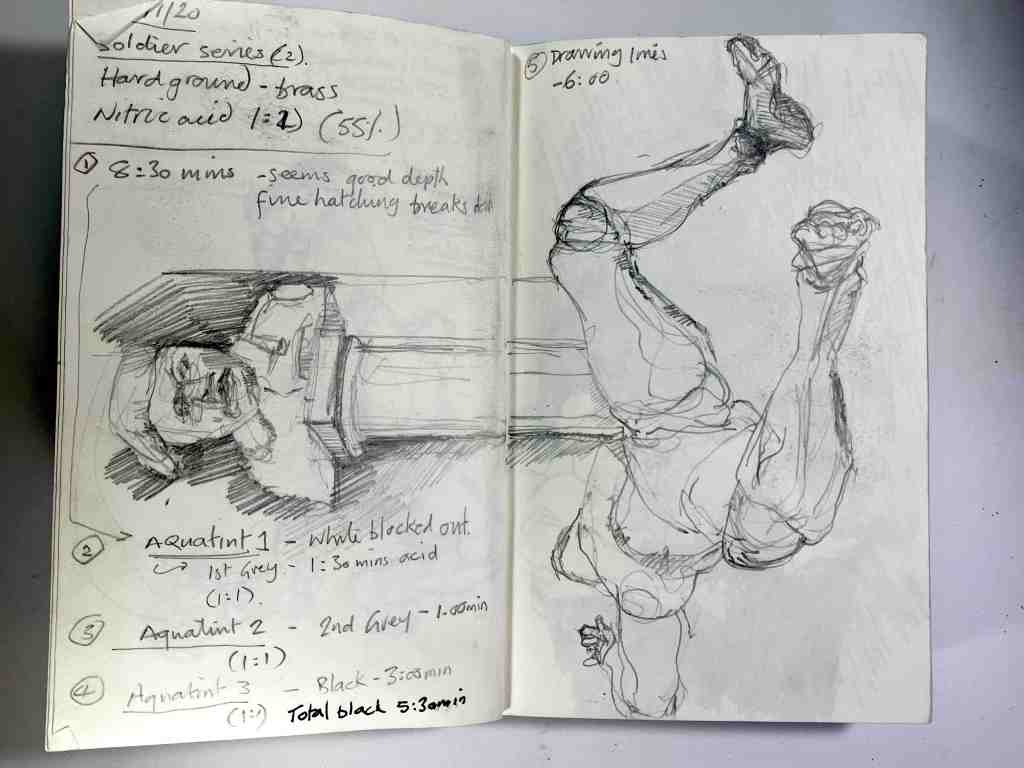 11/20
Soldier series (2).
Hard ground - brass
Nitric acid 1:1) (55%.)
① 8:30 mins - seems good depth
fine hatching breaks
② Aquatint 1 - White blocked out.
1st Grey - 1:30 mins acid
(1:1).
③ Aquatint 2 - 2nd Grey - 1.00min
(1:1)
④ Aquatint 3 - Black - 3:00min
(1:1) Total black 5:30min
⑤ Drawing lines
-6:00